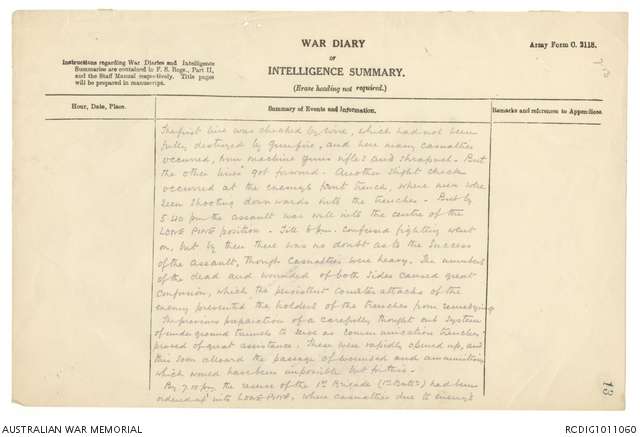 WAR DIARY
or
INTELLIGENCE SUMMARY.
(Erase heading not required.)
Army Form C. 2118.
Instructions regarding War Diaries and Intelligence
Summaries are contained in F. S. Regs., Part II,
and the Staff Manual respectively. Title pages
will be prepared in manuscript.
Hour, Date, Place.
Summary of Events and Information.
Remarks and references to Appendices
The first line was checked by wire, which had not been
fully destroyed by gunfire, and here many casualties
occurred, from machine guns rifles and shrapnel. But
the other lines got forward. Another slight check
occurred at the enemy's front trench, where men were
seen shooting downwards into the trenches. But by
5.40 pm the assault was well into the centre of the
LONE PINE position. Till 6 pm. confused fighting went
on, but by then there was no doubt as to the success
of the assault, though casualties were heavy. The numbers
of the dead and wounded of both sides caused great
confusion, which the persistent counter attacks of the
enemy prevented the holders of the trenches from remedying.
The previous preparation of a carefully thought out system
of underground tunnels to serve as communication trenches
proved of great assistance. These were rapidly opened up, and
this soon allowed the passage of wounded and ammunition
which would have been impossible but for this.
By 7.10 pm the reserve of the 1st Brigade (1st Battn) had been
ordered up into LONE PINE, where casualties due to enemy's
13
AUSTRALIAN WAR MEMORIAL
RCDIG1011060